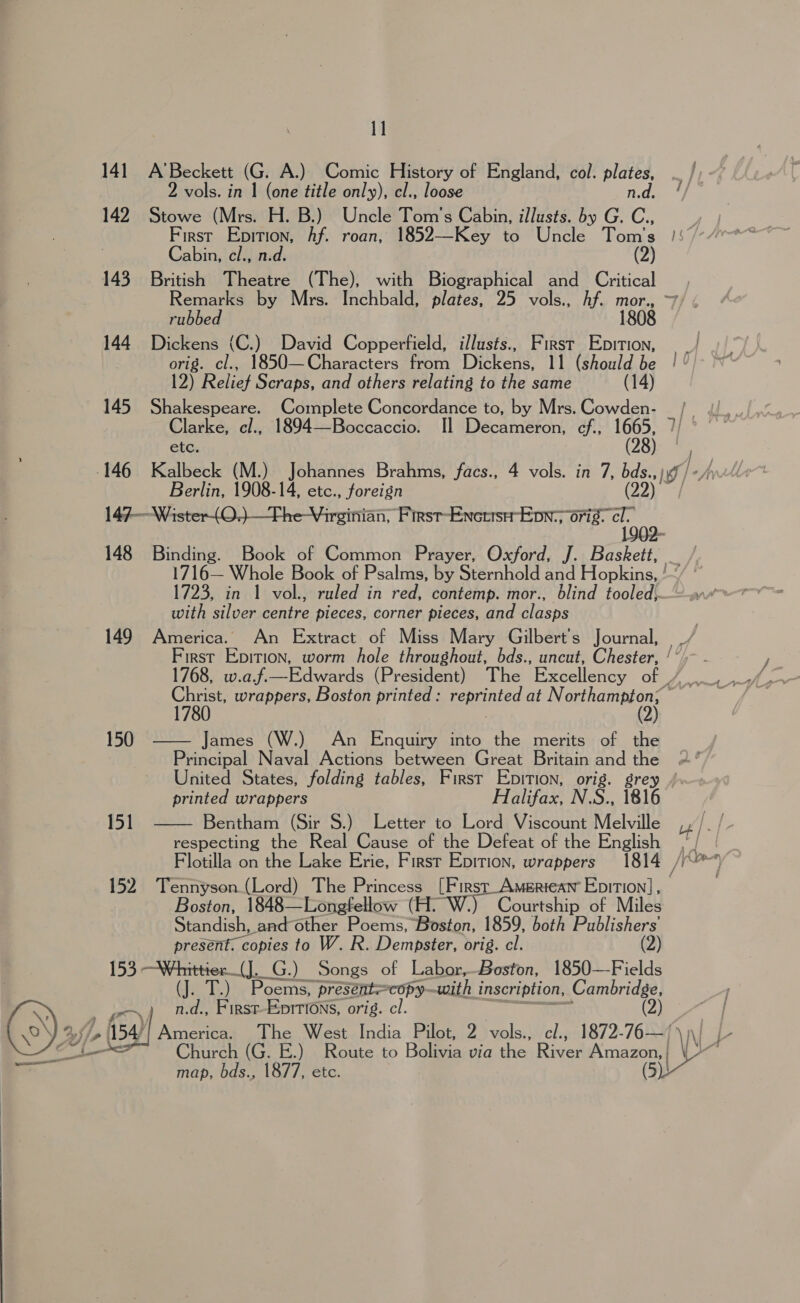 11
141 A'Beckett (G. A.) Comic History of England, col. plates,
2 vols. in 1 (one title only), cl., loose n.d.
142 Stowe (Mrs. H. B.) Uncle Tom's Cabin, illusts. by G. C.,
First Edition, hf. roan, 1852—Key to Uncle Tom's
Cabin, cl., n.d. (2)
143 British Theatre (The), with Biographical and Critical
Remarks by Mrs. Inchbald, plates, 25 vols., hf. mor.,
rubbed 1808
144 Dickens (C.) David Copperfield, illusts., First Edition,
orig. cl., 1850—Characters from Dickens, 11 (should be
12) Relief Scraps, and others relating to the same (14)
145 Shakespeare. Complete Concordance to, by Mrs. Cowden-
Clarke, cl., 1894—Boccaccio. Il Decameron, cf., 1665,
etc. (28)
146 Kalbeck (M.) Johannes Brahms, facs., 4 vols. in 7, bds.,
Berlin, 1908-14, etc., foreign (22)
147 Wister (O.) The Virginian, First English Edn., orig. cl.
1902
148 Binding. Book of Common Prayer, Oxford, J. Baskett,
1716— Whole Book of Psalms, by Sternhold and Hopkins,
1723, in 1 vol., ruled in red, contemp. mor., blind tooled,
with silver centre pieces, corner pieces, and clasps
149 America. An Extract of Miss Mary Gilbert's Journal,
First Edition, worm hole throughout, bds., uncut, Chester,
1768, w.a.f.—Edwards (President) The Excellency of
Christ, wrappers, Boston printed: reprinted at Northampton,
1780 (2)
150 —— James (W.) An Enquiry into the merits of the
Principal Naval Actions between Great Britain and the
United States, folding tables, First Edition, orig. grey
printed wrappers Halifax, N.S., 1816
151 —— Bentham (Sir S.) Letter to Lord Viscount Melville
respecting the Real Cause of the Defeat of the English
Flotilla on the Lake Erie, First Edition, wrappers 1814
152 Tennyson (Lord) The Princess [First American Edition],
Boston, 1848—Longfellow (H. W.) Courtship of Miles
Standish, and other Poems, Boston, 1859, both Publishers'
present. copies to W. R. Dempster, orig. cl. (2)
153 Whittier (J. G.) Songs of Labor, Boston, 1850—Fields
(J. T.) Poems, present copy with inscription, Cambridge,
n.d., First Editions, orig. cl. (2)
154 America. The West India Pilot, 2 vols., cl., 1872-76—
Church (G. E.) Route to Bolivia via the River Amazon,
map, bds., 1877, etc. (5)